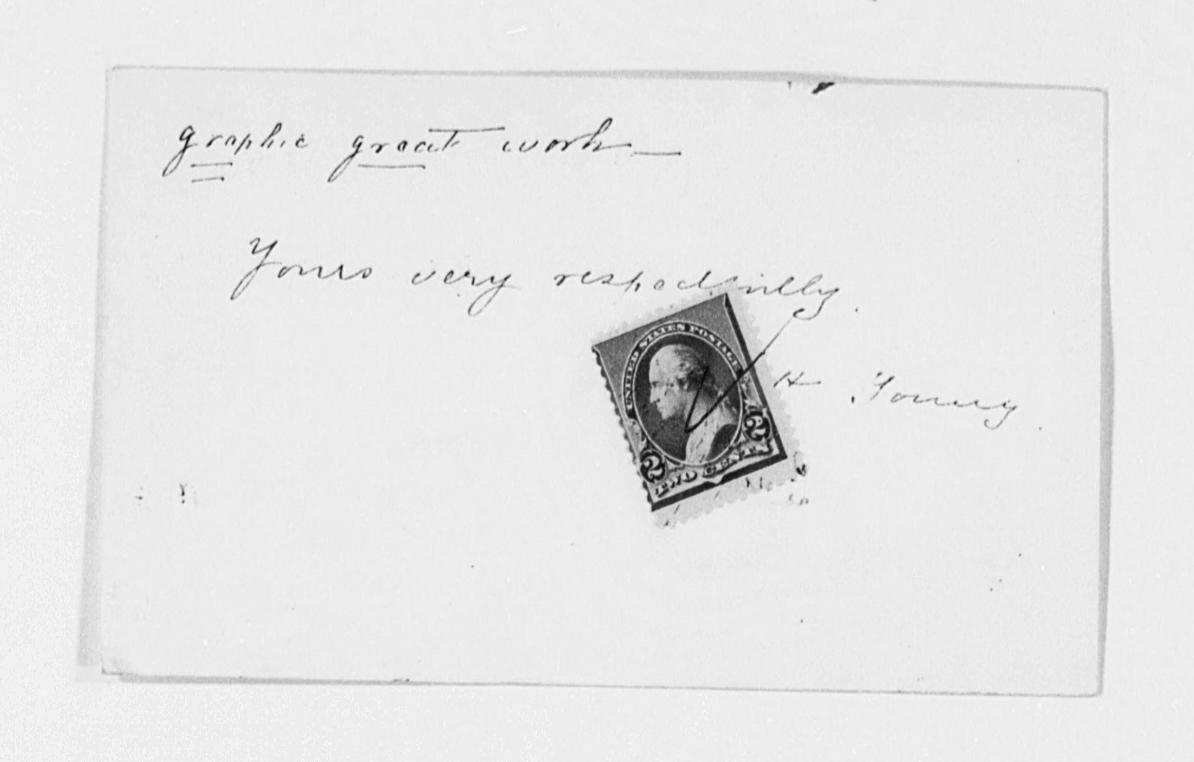 graphic great work —
Yours very respectfully.
H Young.
UNITED STATES POSTAGE
2 2
TWO CENTS